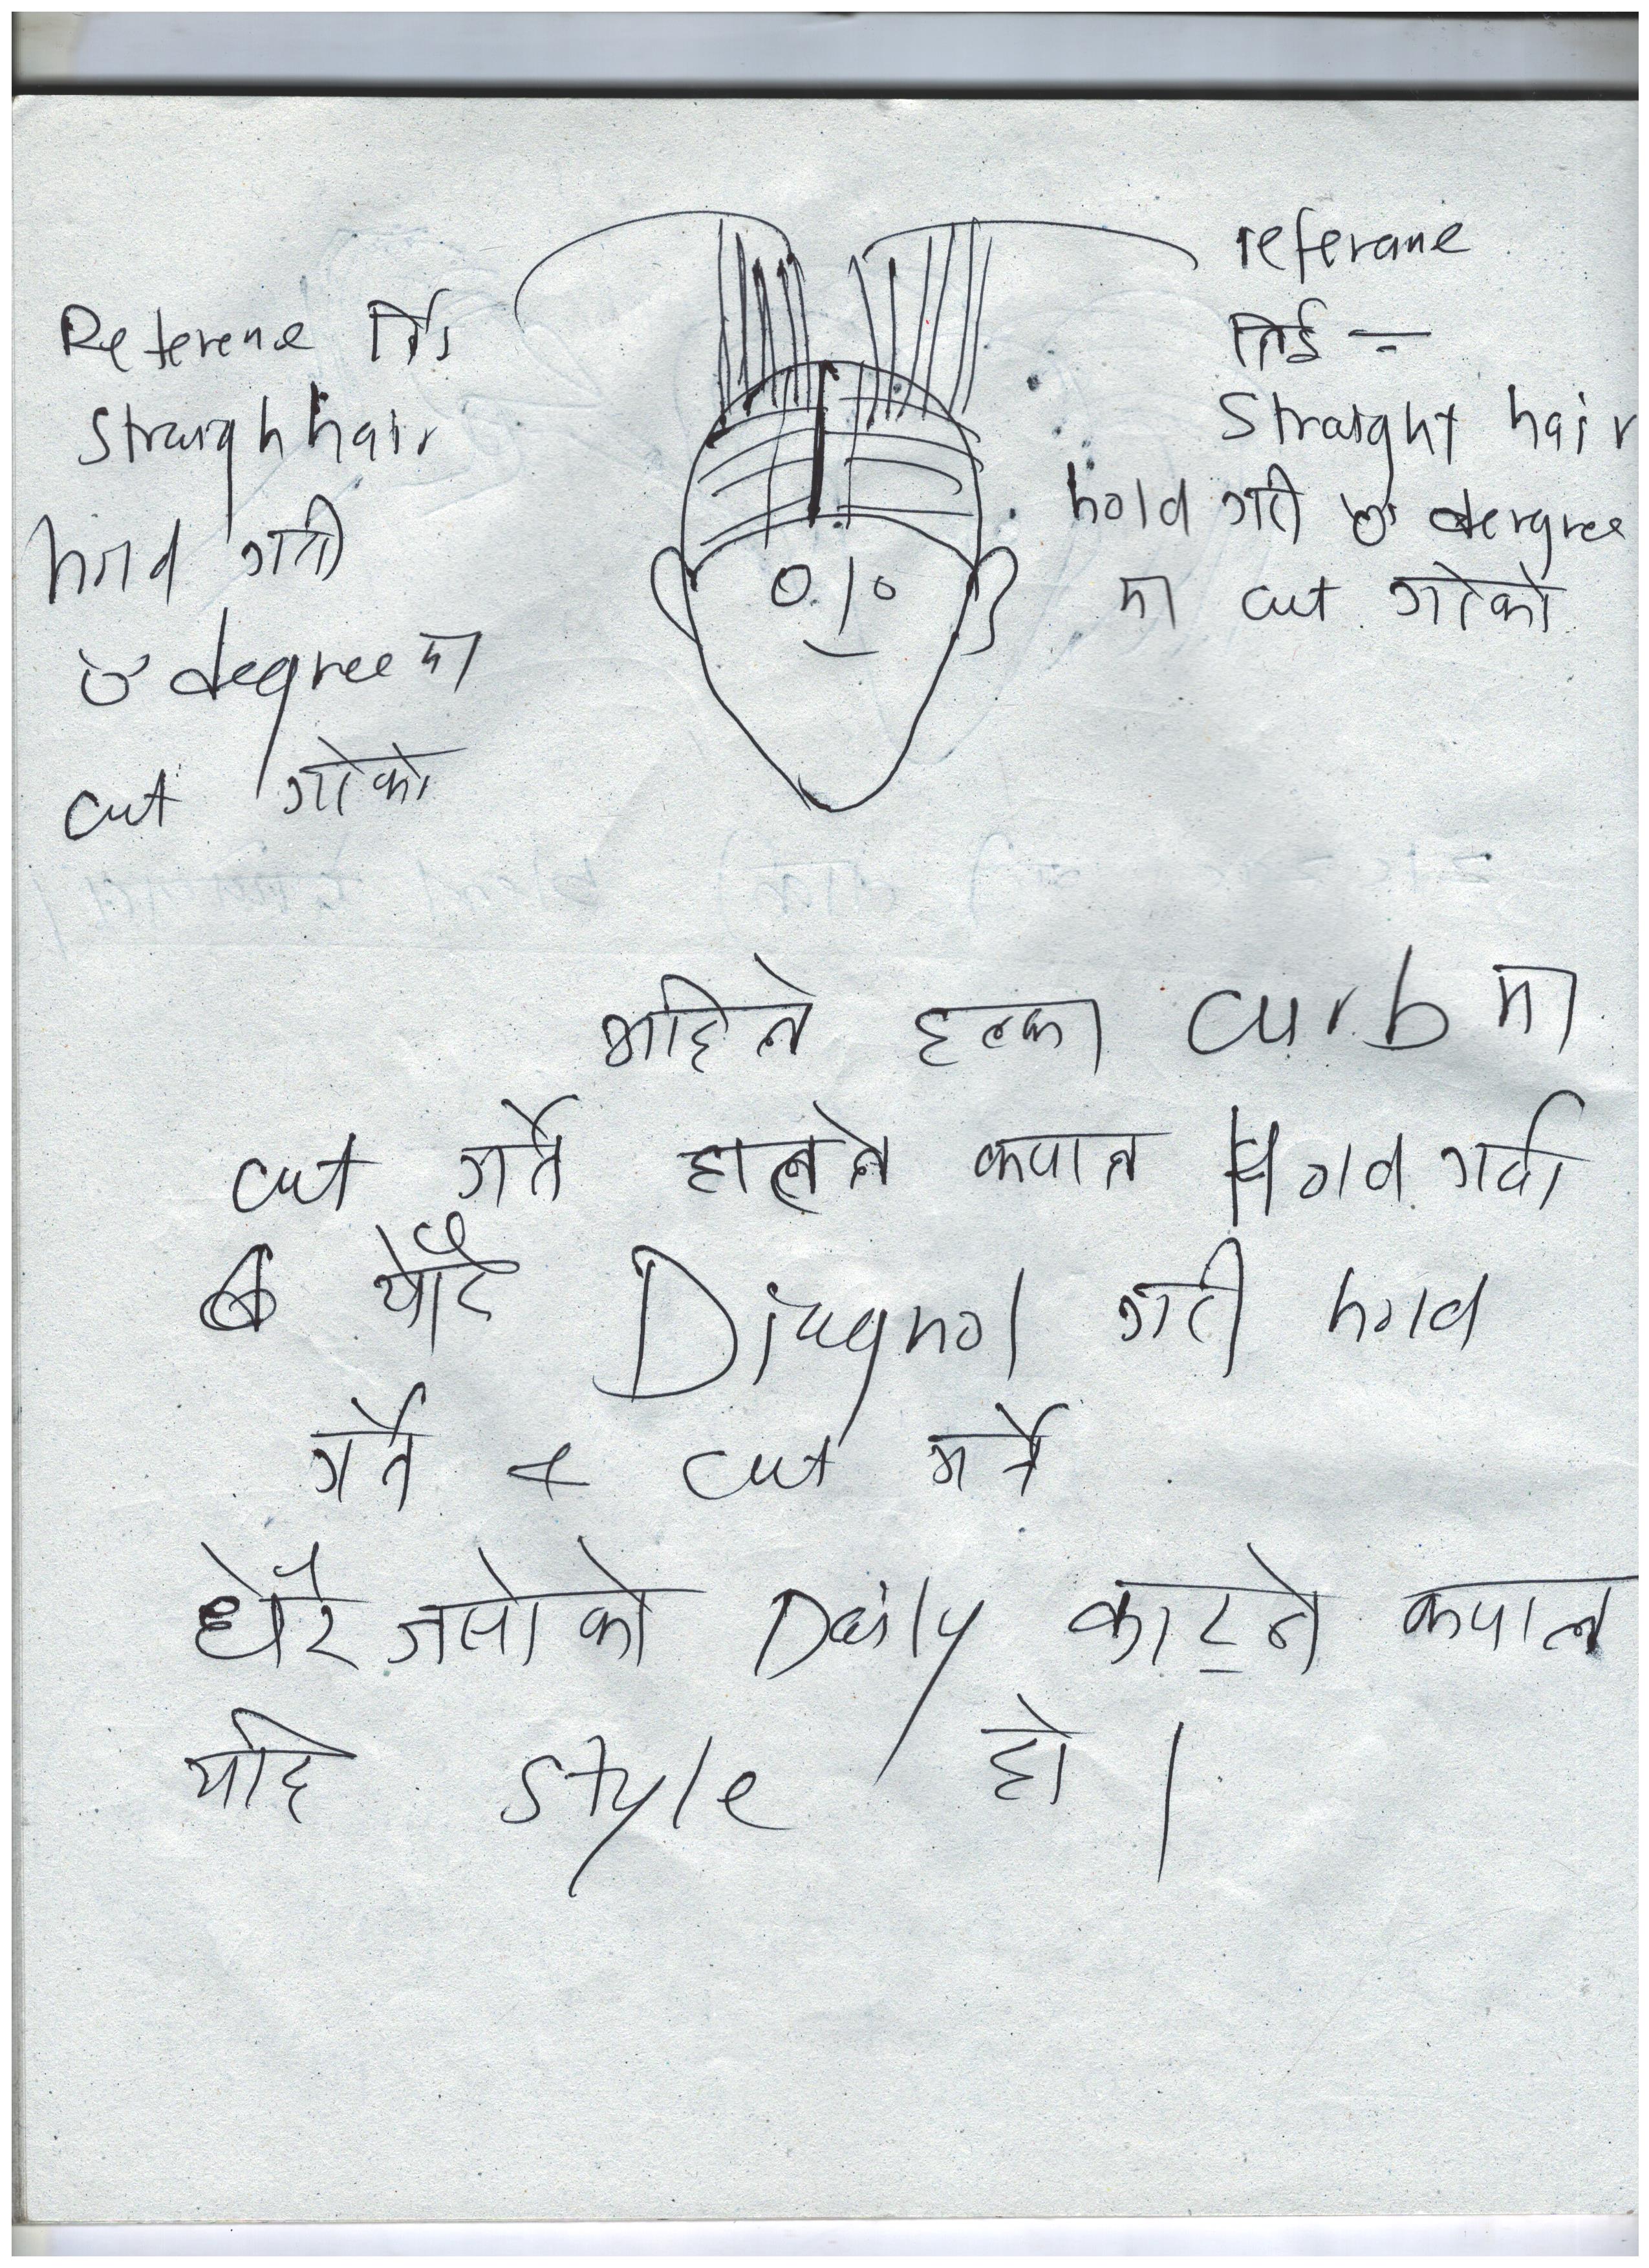 Referene लिई
Straigh hair
hold गरी
० degree मा
cut गरेको
referane
लिई -
Straight hair
hold गरी ० dergree
मा cut गरेको
अहिले हल्का curb मा
cut गर्ने हालने कपाल Hold गर्दा
थोरै Diagnol गरी hold
गर्ने & cut गर्ने
धेरै जसोको Daily काट्ने कपाल
यहि style हो ।